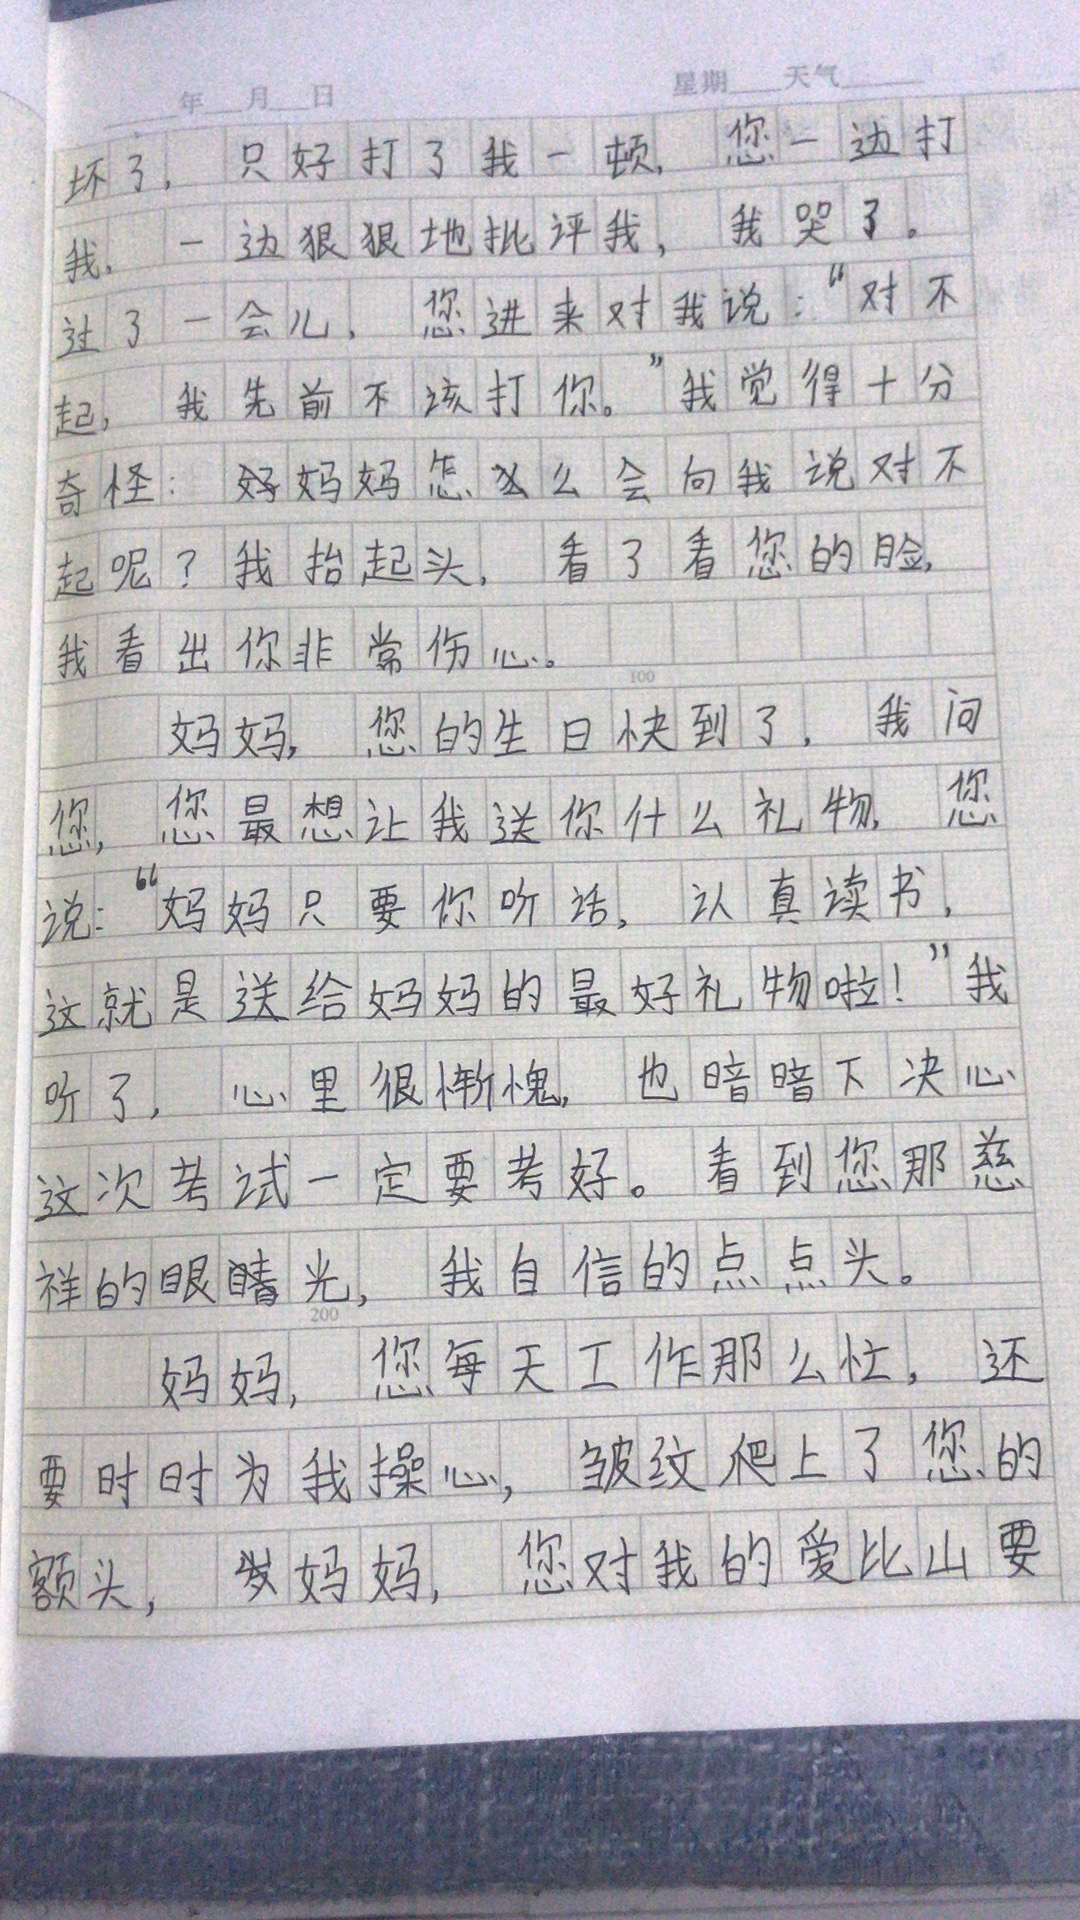 年 月 日 星期 天气
坏了，只好打了我一顿，您一边打
我，一边狠狠地批评我，我哭了。
过了一会儿，您进来对我说：“对不
起，我先前不该打你。”我觉得十分
奇怪：妈妈怎么会向我说对不
起呢？我抬起头，看了看您的脸，
我看出你非常伤心。
100
妈妈，您的生日快到了，我问
您，您最想让我送你什么礼物，您
说：“妈妈只要你听话，认真读书，
这就是送给妈妈的最好礼物啦！”我
听了，心里很惭愧，也暗暗下决心
这次考试一定要考好。看到您那慈
祥的眼光，我自信的点点头。
200
妈妈，您每天工作那么忙，还
要时时为我操心，皱纹爬上了您的
额头，妈妈，您对我的爱比山要